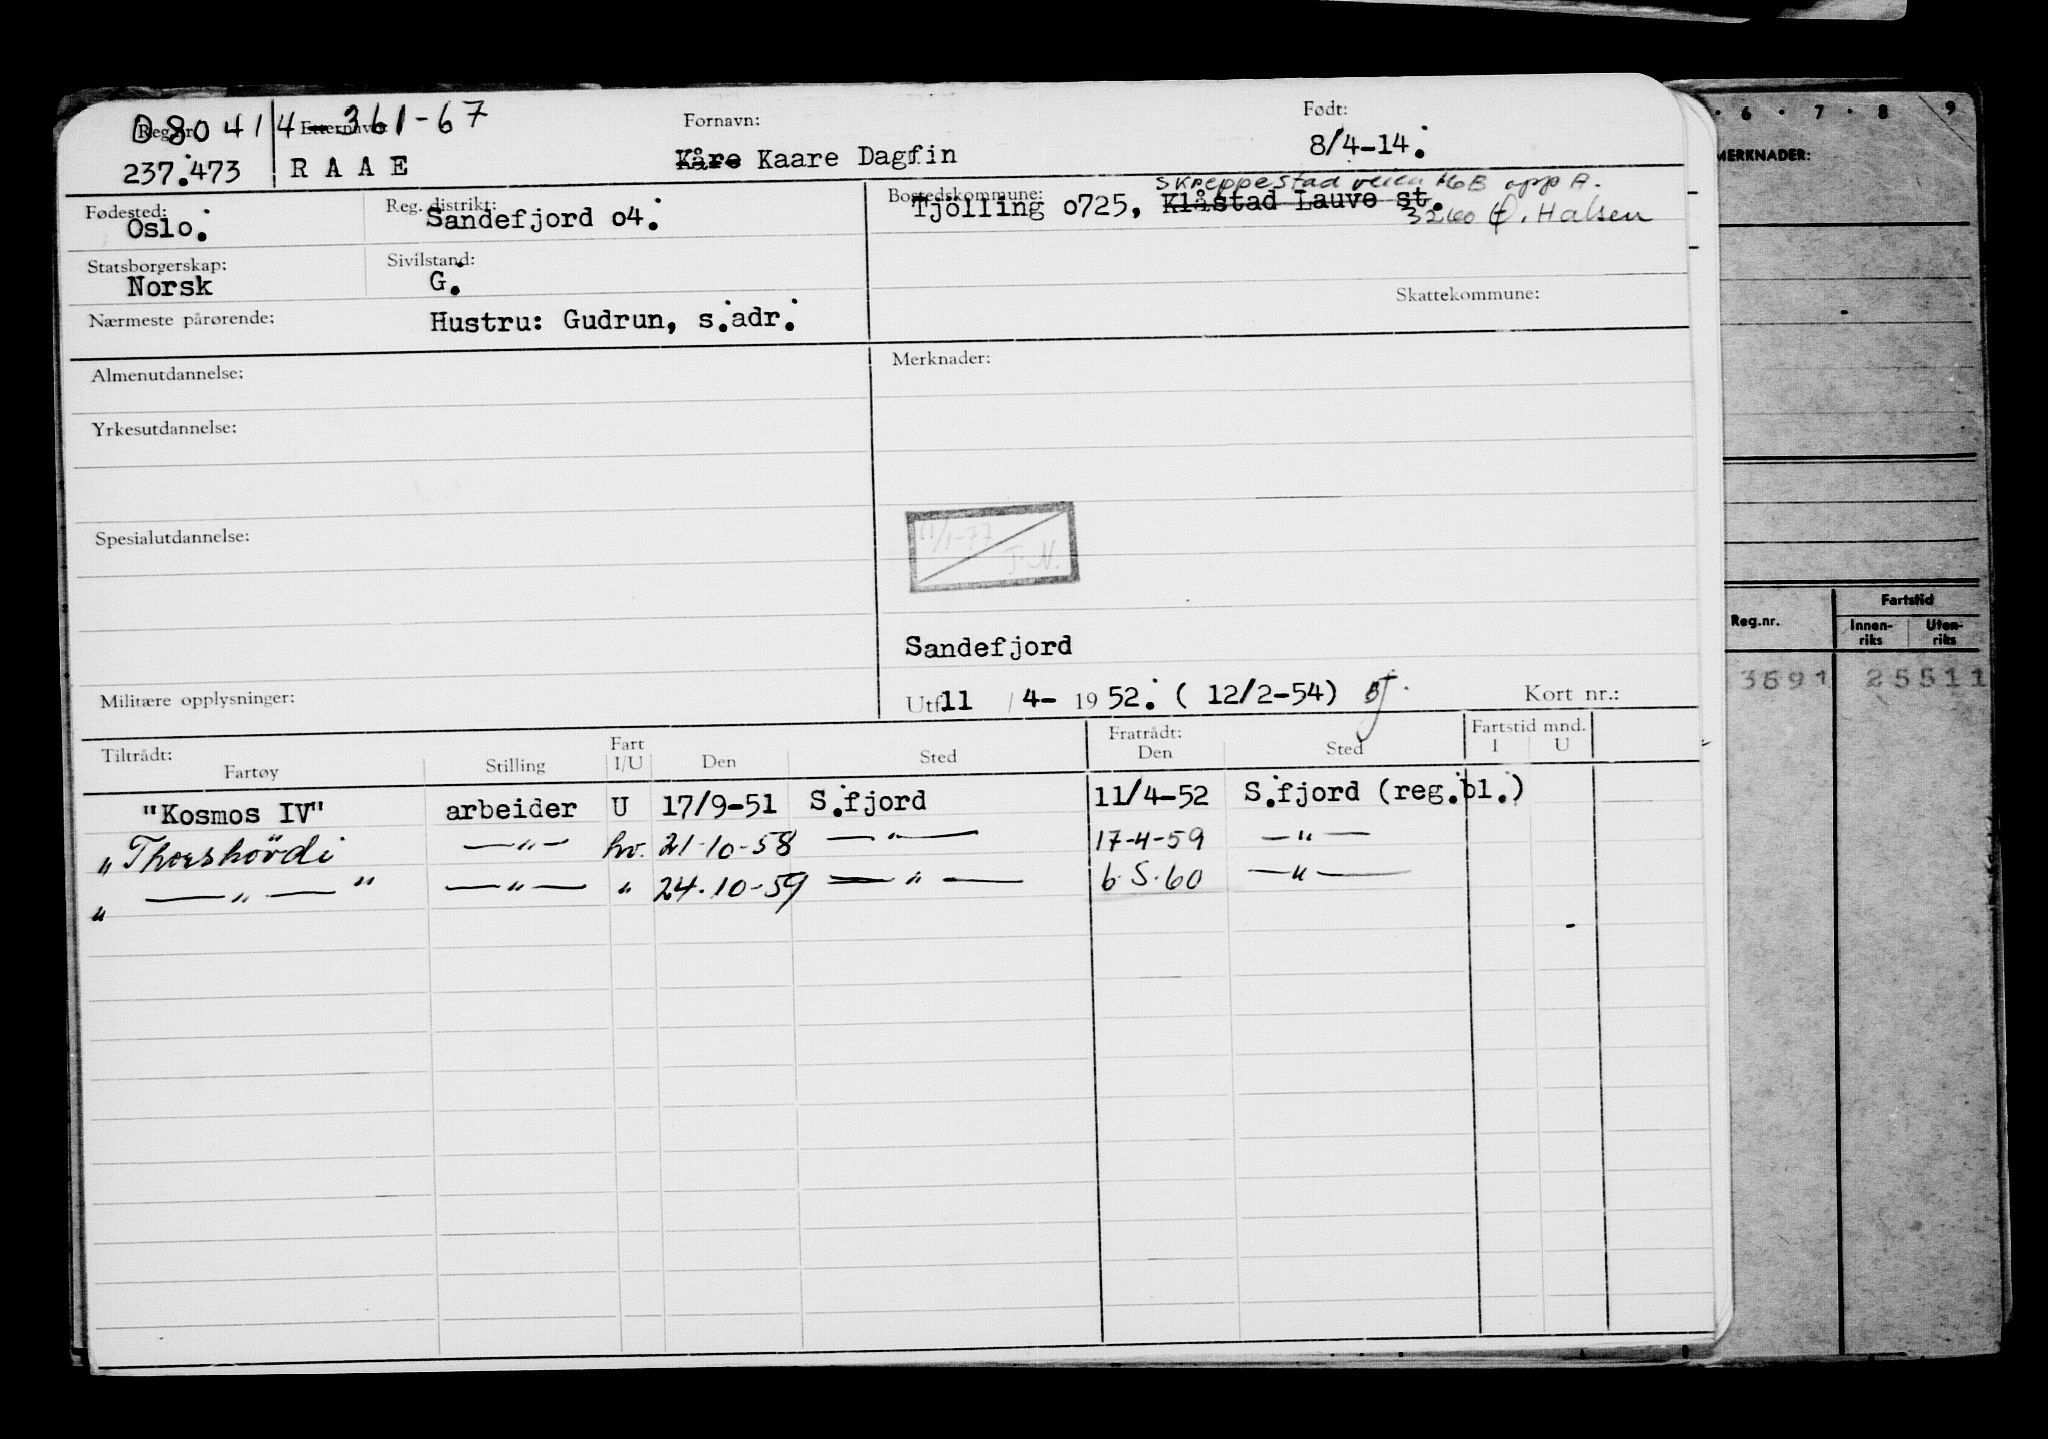 080414-361-67
Reg.nr. Etternavn: Fornavn: Født:
237.473 R A A E Kåre Kaare Dagfin 8/4-14.
Fødested: Reg. distrikt: Bostedskommune: Skreppestad veien 16B opp A.
Oslo. Sandefjord o4. Tjölling o725, Klåstad Lauve st. 3260 Ø. Halsen
Statsborgerskap: Sivilstand:
Norsk G. Skattekommune:
Nærmeste pårørende: Hustru: Gudrun, s.adr.
Almenutdannelse: Merknader:
Yrkesutdannelse:
Spesialutdannelse: 11/1-77
Sandefjord
Militære opplysninger: Utf 11 / 4- 19 52. ( 12/2-54) Kort nr.:
Tiltrådt: Fratrådt: Fartstid mnd.
Fartøy Stilling Fart I/U Den Sted Den Sted I U
"Kosmos IV" arbeider U 17/9-51 S.fjord 11/4-52 S.fjord (reg.bl.)
"Thorshövdi —"— hv. 21-10-58 —"— 17-4-59 —"—
" —"— " —"— " 24-10-59 —"— 6-5-60 —"—
6 · 7 · 8 9
MERKNADER:
Fartstid
Reg.nr. Innen-riks Uten-riks
3691 25511